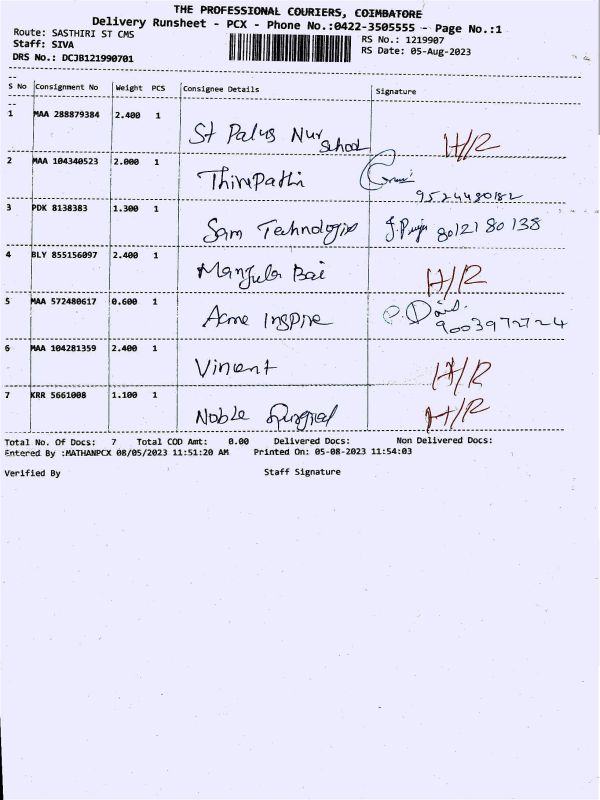 THE PROFESSIONAL COURIERS, COIMBATORE
Delivery Runsheet - PCX - Phone No.:0422-3505555 - Page No.:1
Route: SASTHIRI ST CMS RS No.: 1219907
Staff: SIVA RS Date: 05-Aug-2023
DRS No.: DCJB121990701
S No Consignment No Weight PCS Consignee Details Signature
1 MAA 288879384 2.400 1 St Palus Nur School H/R
2 MAA 104340523 2.000 1 Thirupathi 9524480182
3 PDK 8138383 1.300 1 Sam Technologies J. Priya 8012180138
4 BLY 855156097 2.400 1 Manjula Bai H/R
5 MAA 572480617 0.600 1 Acme Inspire 9003972724
6 MAA 104281359 2.400 1 Vincent H/R
7 KRR 5661008 1.100 1 Noble Surgical H/R
Total No. Of Docs: 7 Total COD Amt: 0.00 Delivered Docs: Non Delivered Docs:
Entered By :MATHANPCX 08/05/2023 11:51:20 AM Printed On: 05-08-2023 11:54:03
Verified By Staff Signature